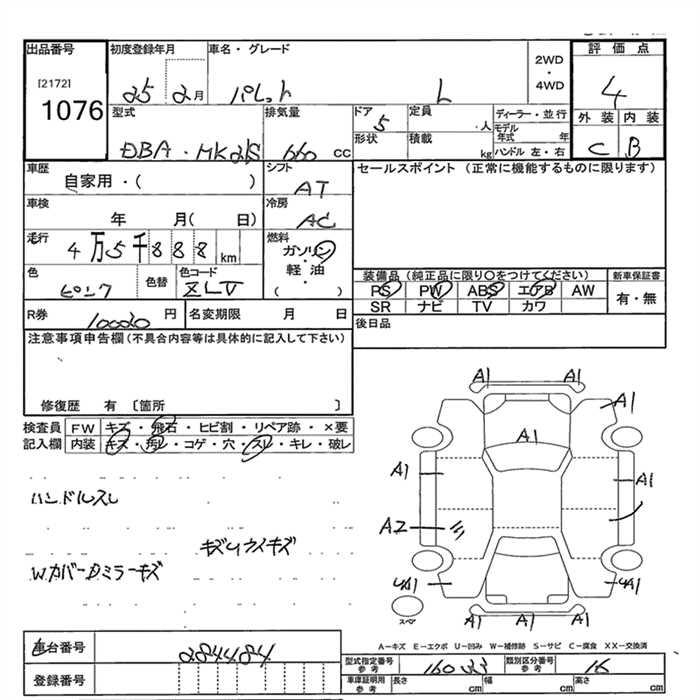 出品番号 初度登録年月 車名・グレード 2WD・4WD 評価点
[2172]
1076
25 2月 パレット L 4
型式 排気量 ドア 5 定員 人 ディーラー・並行 外装 内装
形状 積載 kg モデル年式 年
DBA・MK21S 660 cc ハンドル 左・右 C B
車歴 シフト セールスポイント (正常に機能するものに限ります)
自家用・( ) AT
車検 冷房
年 月( 日) AC
走行 燃料
4万5千888km ガソリン
軽・油
( )
色 色替 色コード 装備品 (純正品に限り○をつけてください) 新車保証書
ピンク ZLV PS PW ABS エアB AW 有・無
SR ナビ TV カワ
R券 円 名変期限 月 日 後日品
注意事項申告欄(不具合内容等は具体的に記入して下さい)
修復歴 有 〔箇所 〕
検査員記入欄 FW キズ・飛石・ヒビ割・リペア跡・×要
内装 キズ・汚レ・コゲ・穴・スレ・キレ・破レ
ハンドルスレ
W.カバーDミラーキズ
A1 A1 A1
A1
A1 A1
A2
4A1 4A1
A1 A1 A1
スペア
A-キズ E-エクボ U-凹み W-補修跡 S-サビ C-腐食 XX-交換済
車台番号 284484
登録番号
型式指定番号 参考 類別区分番号 参考
車庫証明用 参考 長さ cm 幅 cm 高さ cm